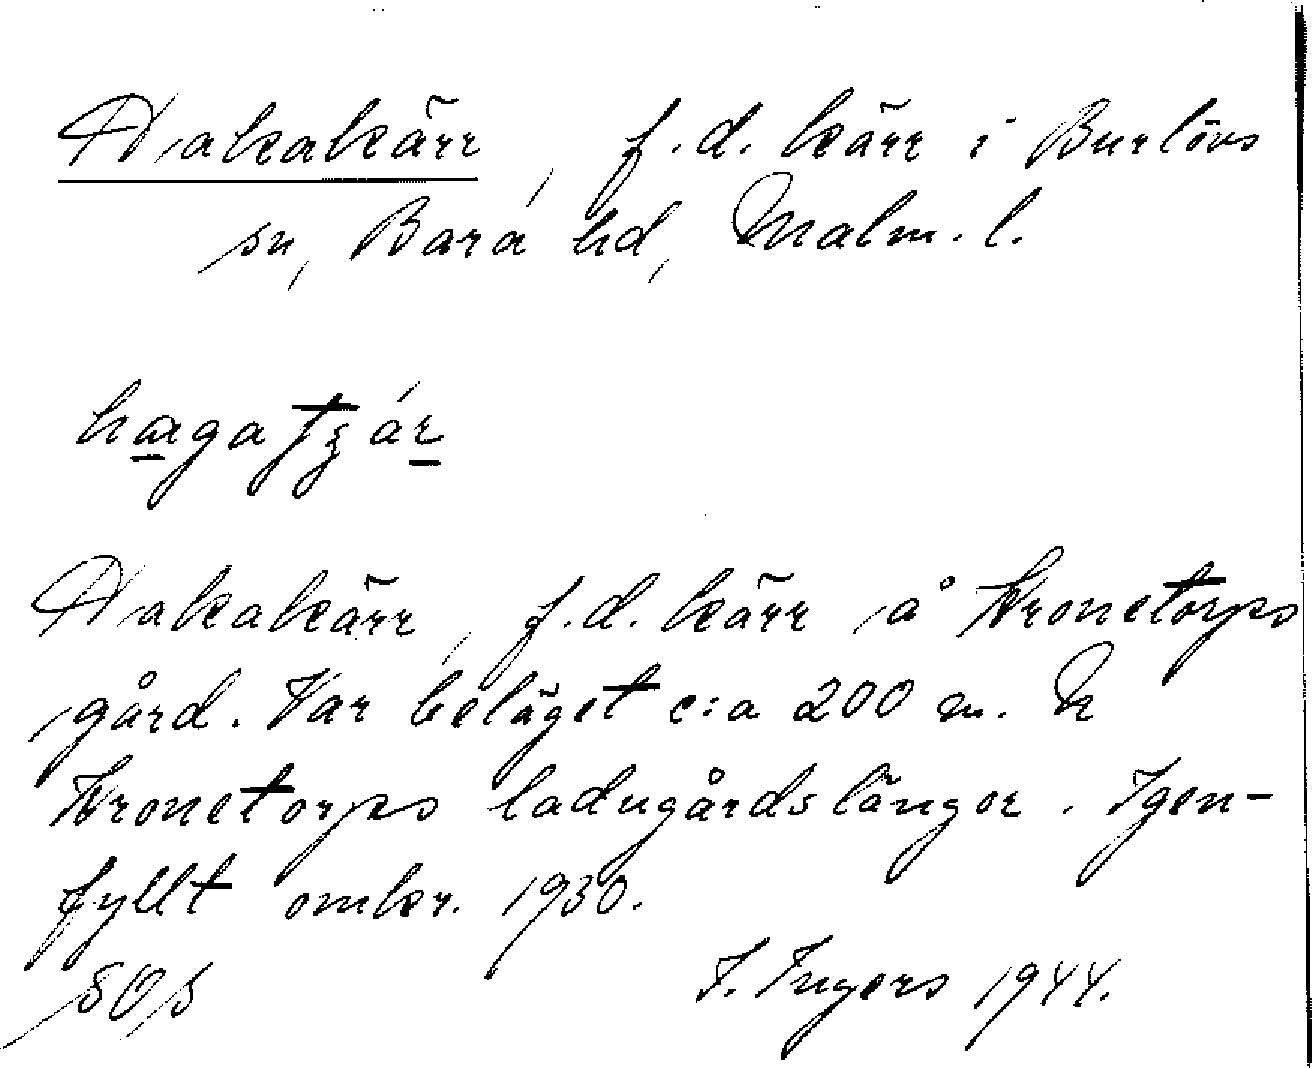 Hakakärr, f.d. kärr i Burlövs
sn, Bara hd, Malm. l.
Hakakärr, f.d. kärr å Kronetorps
gård. Var beläget c:a 200 m. N
Kronetorps ladugårdslängor. Igen-
fyllt omkr. 1930.
SOS
I. Ingers 1944.